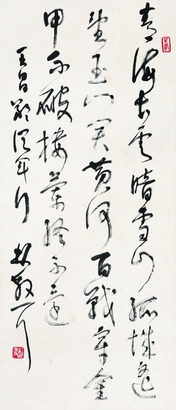 青海长雲暗雪山孤城遥
望玉门关黄沙百戰穿金
甲不破楼蘭终不還
王昌龄從军行 林散耳